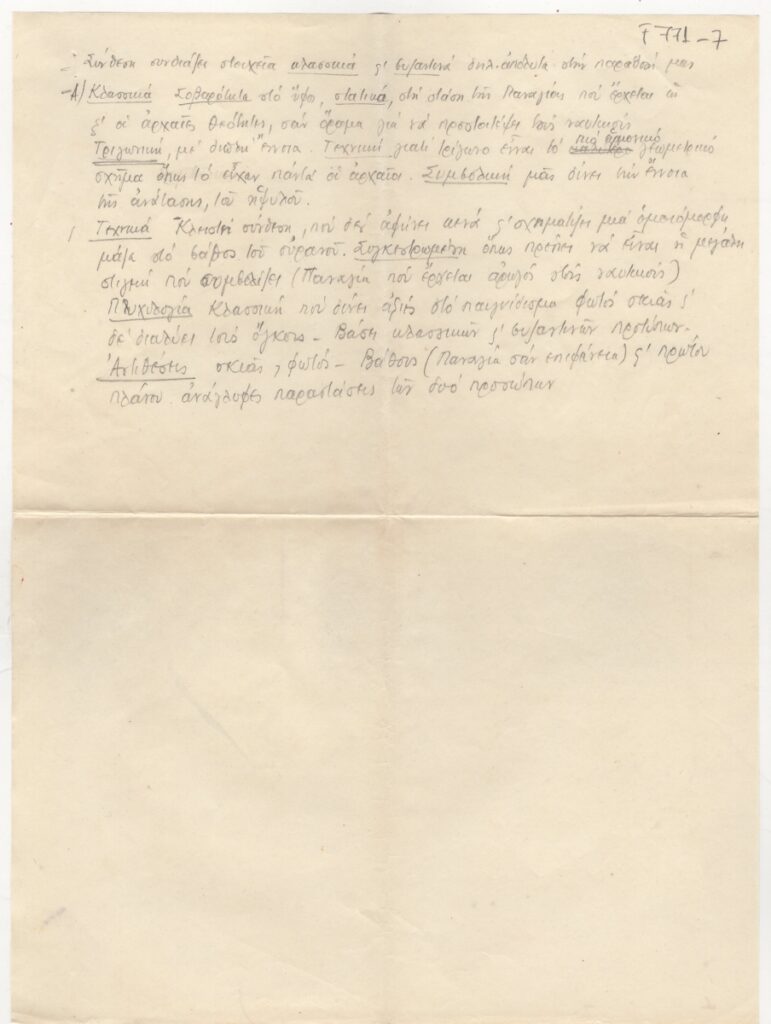 T 771-7
Σύνθεση συνδιάζει στοιχεῖα κλασσικά ϛ' βυζαντινά δηλ. ἀπόλυτα στήν παράδοσή μας
Α) Κλασσικά Σοβαρότητα στό ὕφος, στατικά, στή στάση τῆς Παναγίας πού ἔρχεται
ϛ' οἱ ἀρχαῖες θεότητες, σάν ὅραμα γιά νά προστατέψει τούς ναυτικούς
Τριγωνική, μέ διπλῆ ἔννοια. Τεχνική γιατί τρίγωνο εἶναι τό πιό ἁρμονικό γεωμετρικό
σχῆμα ὅπως τό εἶχαν πάντα οἱ ἀρχαῖοι. Συμβολική μᾶς δίνει τήν ἔννοια
τῆς ἀνάτασης, τοῦ ὑψηλοῦ.
Τεχνικά Κλειστή σύνθεση, πού δέν ἀφίνει κενά ϛ' σχηματίζει μιά ὁμοιόμορφη
μάζα στό βάθος τοῦ οὐρανοῦ. Συγκεντρωμένη ὅπως πρέπει νά εἶναι ἡ μεγάλη
στιγμή πού συμβολίζει (Παναγία πού ἔρχεται ἀρωγός στούς ναυτικούς)
Πτυχολογία Κλασσική πού δίνει ἀξίες στό παιγνίδισμα φωτός σκιᾶς ϛ'
δέ διαλύει τούς ὄγκους - Βάσει κλασσικῶν ϛ' βυζαντινῶν προτύπων-
Ἀντιθέσεις σκιᾶς, φωτός - Βάθους (Παναγία σάν ἐπιφάνεια) ϛ' πρώτου
πλάνου. ἀνάγλυφες παραστάσεις τῶν δυό προσώπων